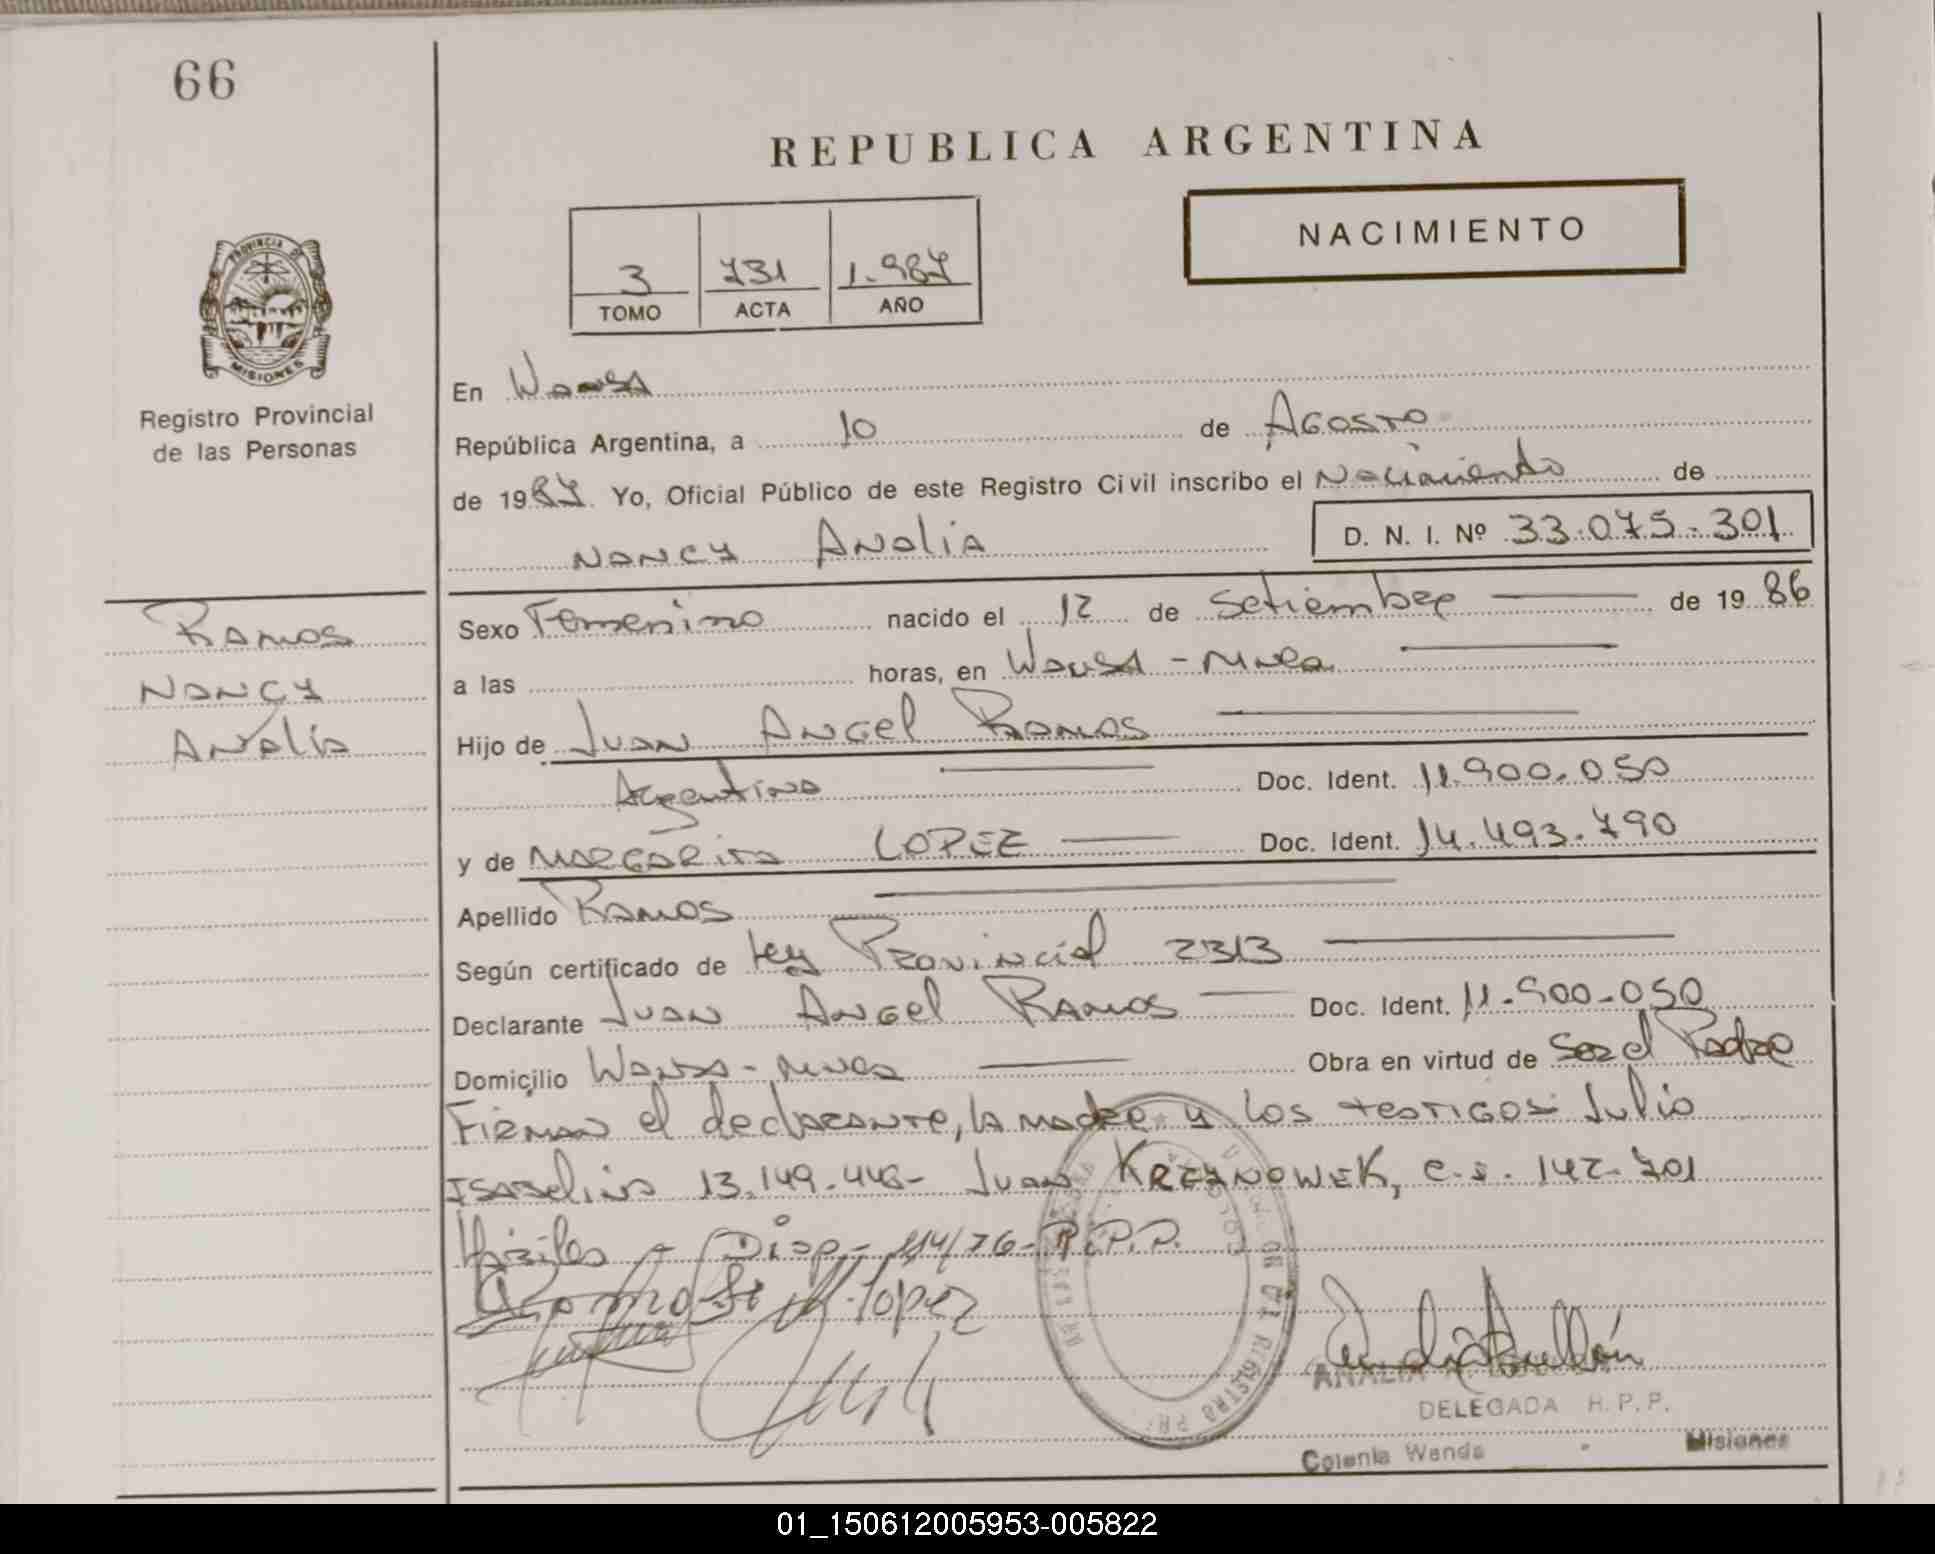 66
REPUBLICA ARGENTINA
NACIMIENTO
3 731 1.987
TOMO ACTA AÑO
PROVINCIA DE
MISIONES
Registro Provincial
de las Personas
En Wanda
República Argentina, a 10 de Agosto
de 1987. Yo, Oficial Público de este Registro Civil inscribo el Nacimiento de
Nancy Analia D. N. I. Nº 33.075.301
Ramos
Nancy
Analia
Sexo Femenino nacido el 12 de Setiembre de 1986
a las horas, en Wanda - Mnes
Hijo de Juan Angel Ramos
Argentino Doc. Ident. 11.900.050
y de Margarita LOPEZ Doc. Ident. 14.493.790
Apellido Ramos
Según certificado de Ley Provincial 2313
Declarante Juan Angel Ramos Doc. Ident. 11.900.050
Domicilio Wanda - Mnes Obra en virtud de Ser el Padre
Firman el declarante, la madre y los testigos Julio
Isabelino 13.149.448- Juan KRZYNOWEK, C.I. 142.701
Hábiles - Disp- 114/76- R.P.P.
M. Lopez
DELEGADA R. P. P.
Colonia Wanda Misiones
01_150612005953-005822